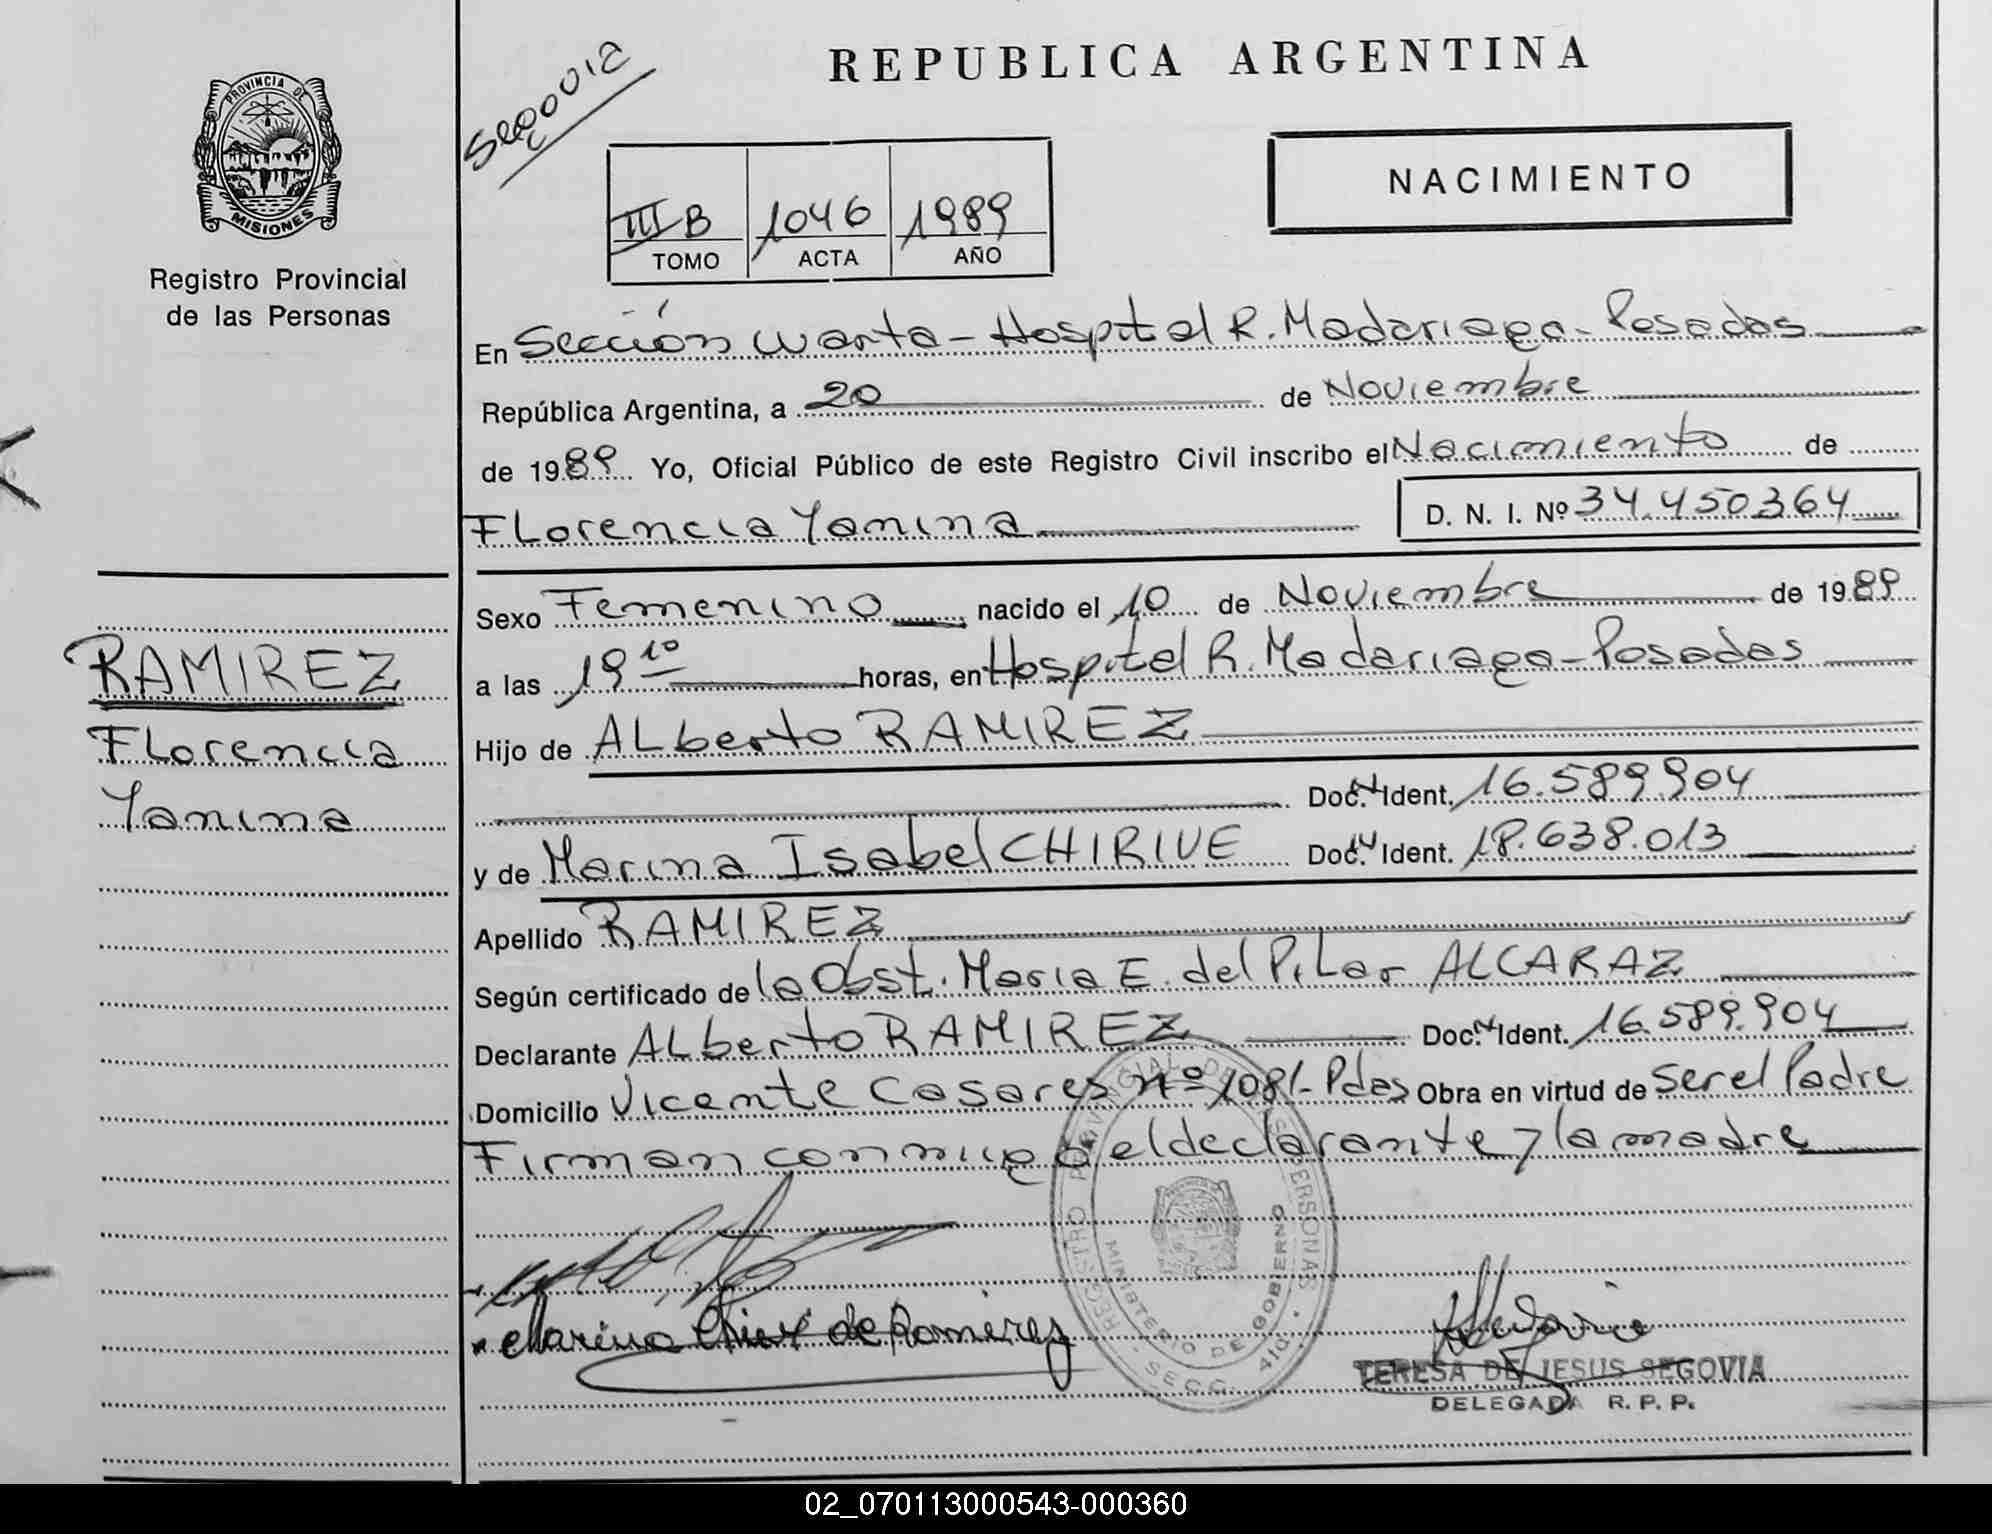 REPUBLICA ARGENTINA
PROVINCIA DE
MISIONES
Registro Provincial
de las Personas
III B 1046 1989
TOMO ACTA AÑO
NACIMIENTO
En Sección cuarta - Hospital R. Madariaga - Posadas
República Argentina, a 20 de Noviembre
de 1989 Yo, Oficial Público de este Registro Civil inscribo el Nacimiento de
Florencia Yanina D. N. I. Nº 34.450.364
Sexo Femenino nacido el 10 de Noviembre de 1989
a las 19 10 horas, en Hospital R. Madariaga - Posadas
Hijo de ALberto RAMIREZ
Doc. N Ident. 16.589.904
y de Marina Isabel CHIRIVE Doc. N Ident. 18.638.013
Apellido RAMIREZ
Según certificado de la Obst. Maria E. del Pilar ALCARAZ
Declarante ALberto RAMIREZ Doc. N Ident. 16.589.904
Domicilio Vicente Casares nº 1081 - Pdas Obra en virtud de ser el Padre
Firman conmigo el declarante y la madre
RAMIREZ
Florencia
Yanina
REGISTRO PROVINCIAL DE LAS PERSONAS
MINISTERIO DE GOBIERNO
SECC. 4ta.
Marina de Ramirez
TERESA DE JESUS SEGOVIA
DELEGADA R. P. P.
02_070113000543-000360